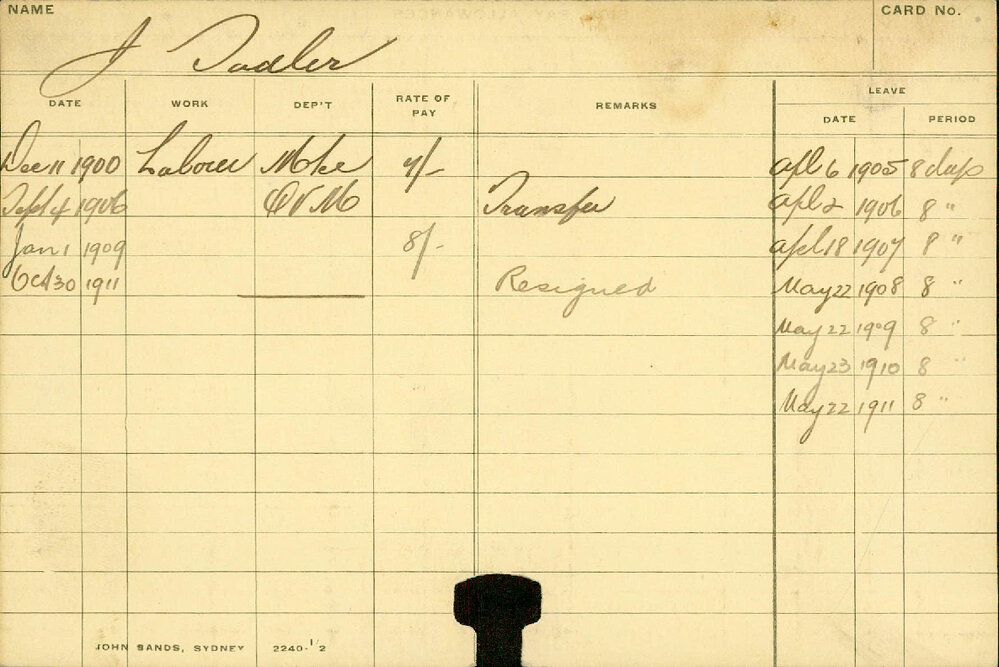 NAME
CARD No.
J Sadler
DATE WORK DEP'T RATE OF PAY REMARKS LEAVE
DATE PERIOD
Dec 11 1900 Laborer Mke 7/- Apl 6 1905 8 days
Sept 4 1906 QVM Transfer Apl 2 1906 8 "
Jan 1 1909 8/- Apl 18 1907 8 "
Oct 30 1911 Resigned May 22 1908 8 "
May 22 1909 8 "
May 23 1910 8 "
May 22 1911 8 "
JOHN SANDS, SYDNEY 2240-1/2